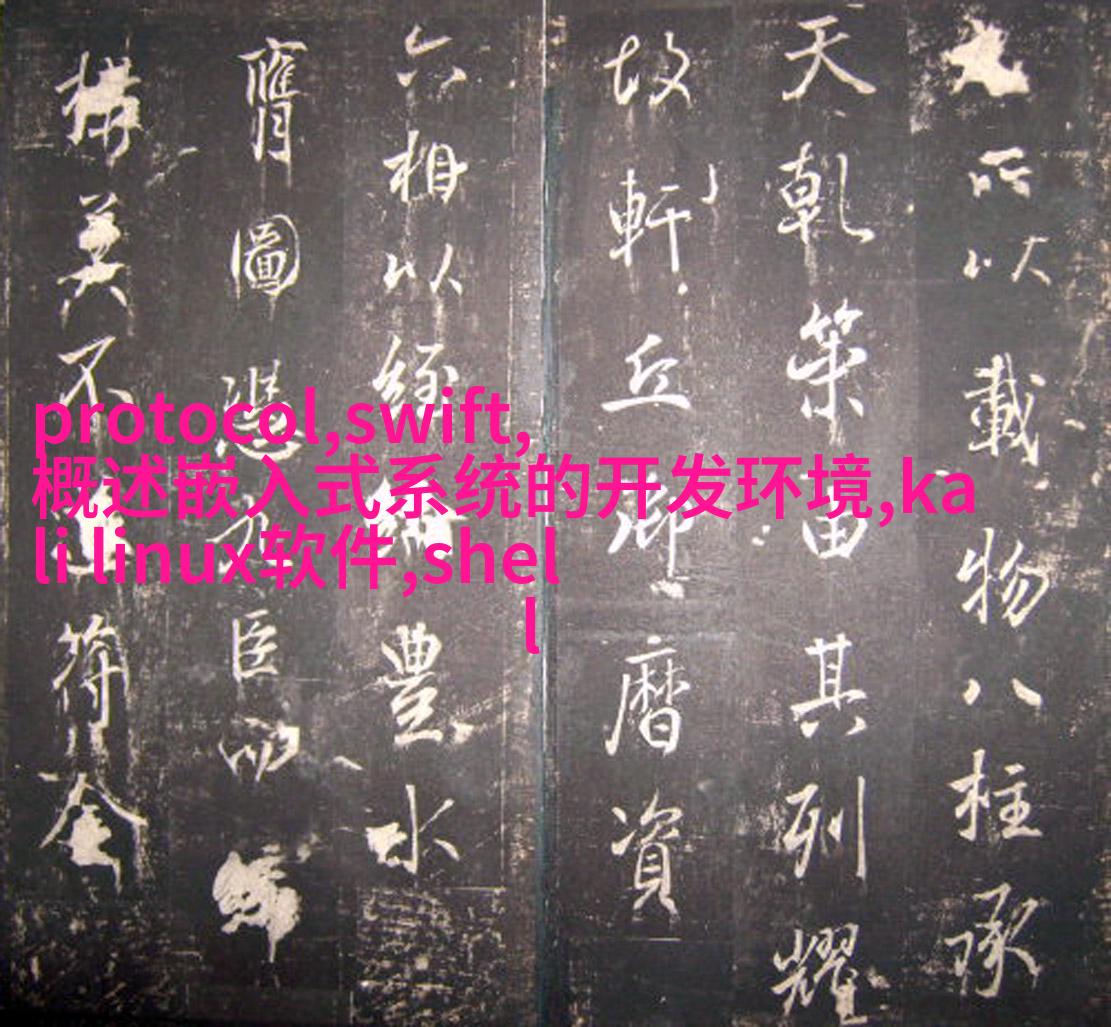 所以載物八柱承
天乾策由其列耀
故軒丘御曆資
六相以經綸豐水
膺圖憑臣而
構美不符
protocol,swift,
概述嵌入式系统的开发环境,ka
li linux软件,shel
l